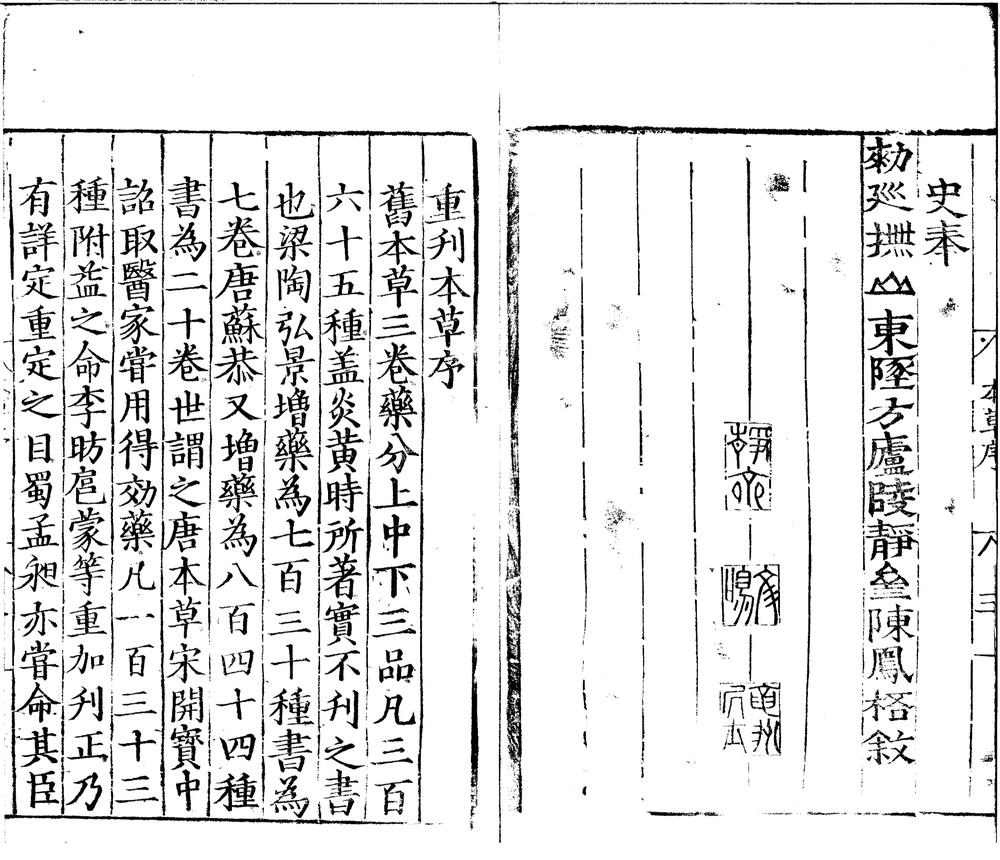 本草序
三
史奉
勑廵撫山東墜方廬陵靜㙓陳鳳梧敘
重刋本草序
舊本草三卷藥分上中下三品凡三百
六十五種盖炎黃時所著實不刋之書
也梁陶弘景增藥為七百三十種書為
七卷唐蘇恭又增藥為八百四十四種
書為二十卷世謂之唐本草宋開寶中
詔取醫家甞用得効藥凡一百三十三
種附益之命李昉扈蒙等重加刋正乃
有詳定重定之目蜀孟昶亦甞命其臣